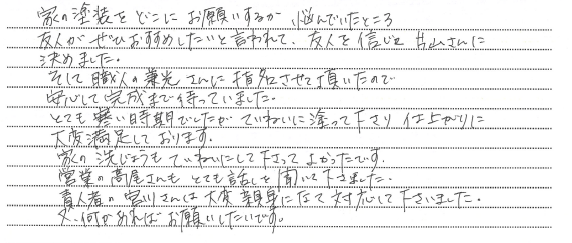 家の塗装をどこにお願いするか 悩んでいたところ
友人がぜひおすすめしたいと言われて、友人を信じ片山さんに
決めました。
そして職人の兼光さんに指名させて頂いたので
安心して完成まで待っていました。
とても寒い時期でしたがていねいに塗って下さり 仕上がりに
大変満足しております。
家の洗じょうもていねいにして下さってよかったです。
営業の高尾さんも とても話しも聞いて下さました。
責人者の宮川さんは大変親身になって対応して下さいました。
又、何かあればお願いしたいです。